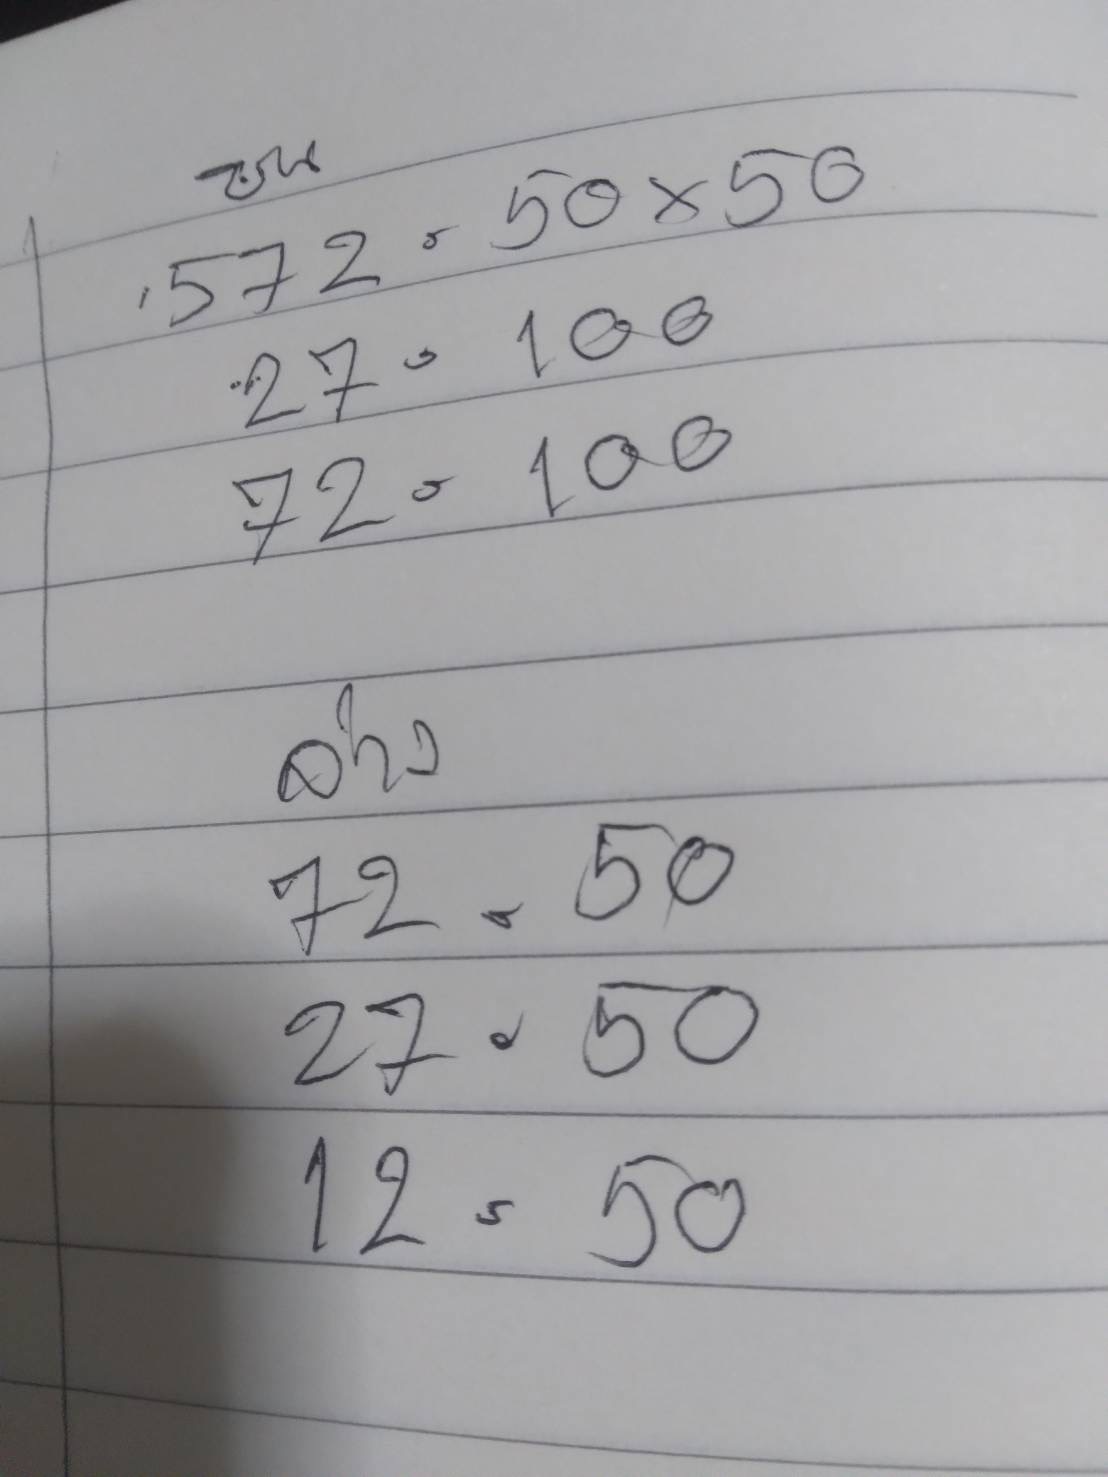 บน
572 = 50×50
27 = 100
72 = 100
ล่าง
72 = 50
27 = 50
12 = 50